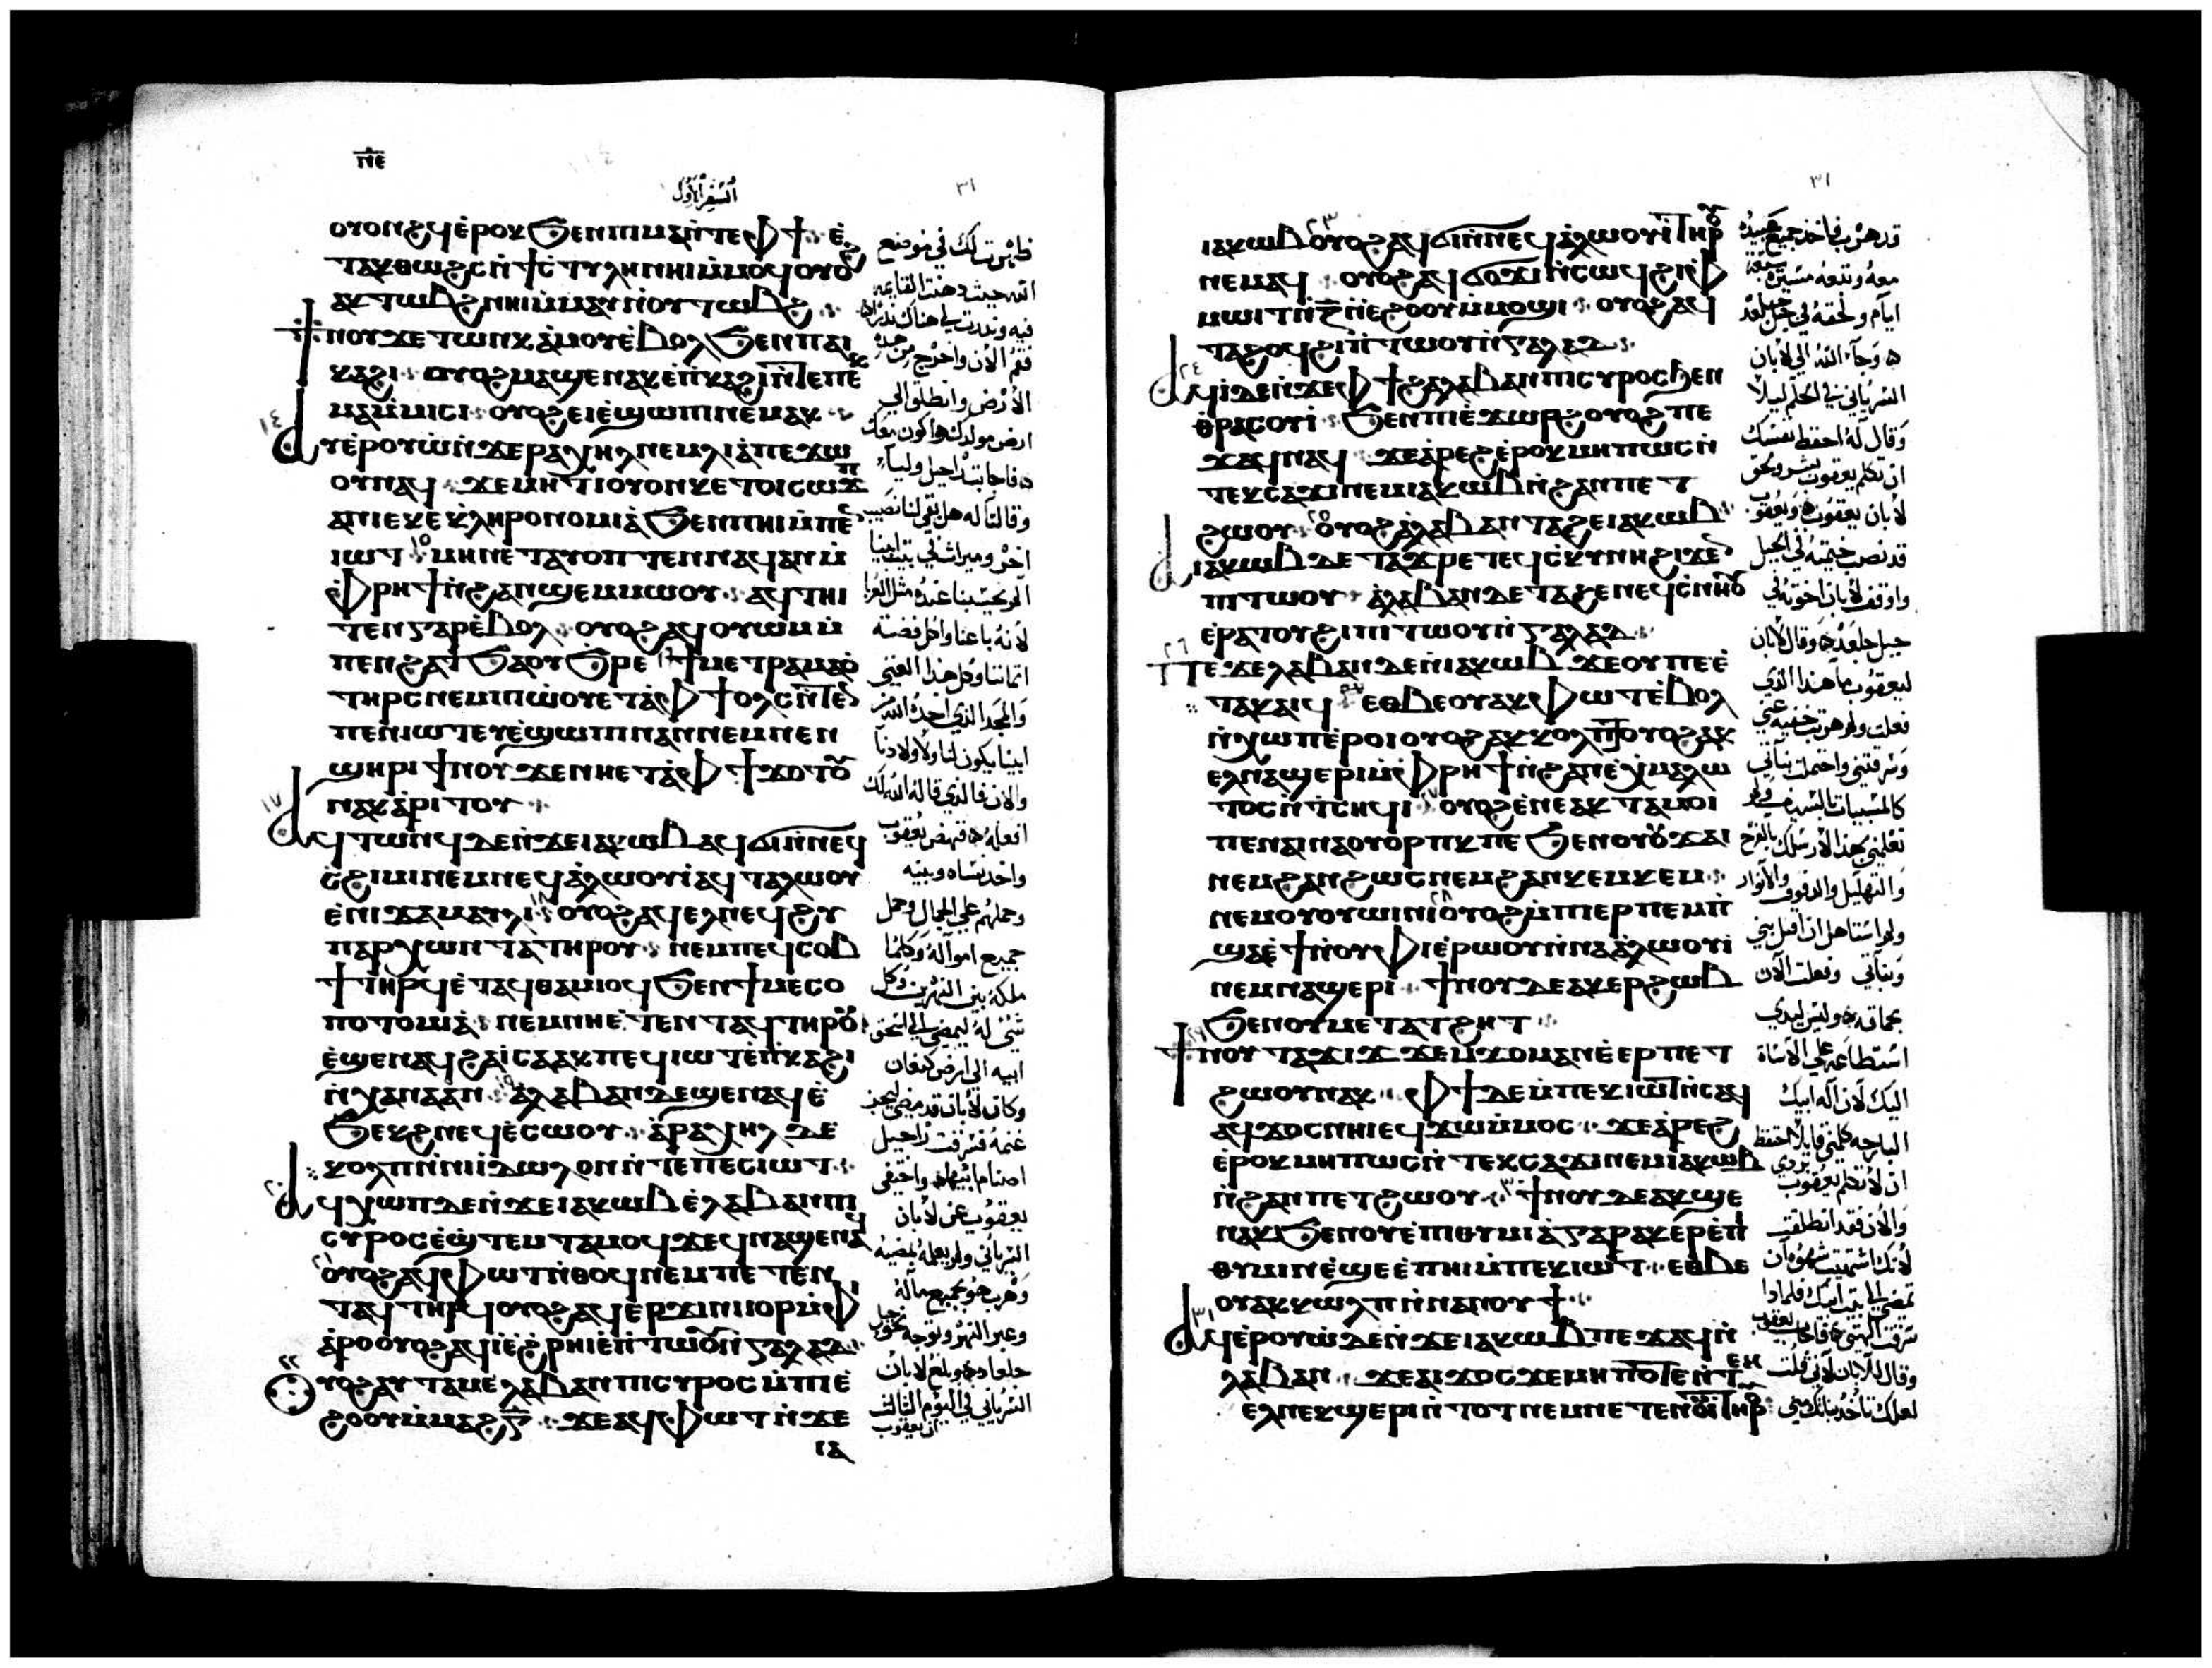 ⲡ̅ⲉ̅
السفر الأول
٣١
ⲟⲩⲟⲛϩϥ ⲉ̀ⲣⲟⲕ ϧⲉⲛ ⲡⲓⲙⲁ ⲛ̀ⲧⲉ ⲫϯ ⲉ̀
ⲧⲁⲕⲑⲱϩⲥ ⲛ̀ϯⲥⲧⲩⲗⲏ ⲛⲏⲓ ⲙ̀ⲙⲟϥ ⲟⲩⲟϩ
ⲁⲕⲧⲱⲃϩ ⲛⲏⲓ ⲙ̀ⲙⲁⲩ ⲛ̀ⲟⲩⲧⲱⲃϩ
ϯⲛⲟⲩ ϫⲉ ⲧⲱⲛⲕ ⲁ̀ⲙⲟⲩ ⲉ̀ⲃⲟⲗ ϧⲉⲛ ⲡⲁⲓ
ⲕⲁϩⲓ ⲟⲩⲟϩ ⲙⲁϣⲉⲛⲁⲕ ⲉ̀ⲡ̀ⲕⲁϩⲓ ⲛ̀ⲧⲉ ⲡⲉⲕ
ⲙⲁⲙ̀ⲙⲓⲥⲓ ⲟⲩⲟϩ ⲉⲓⲉ̀ϣⲱⲡⲓ ⲛⲉⲙⲁⲕ
١٤
ⲁⲩⲉ̀ⲣⲟⲩⲱ̀ ⲛ̀ϫⲉ ⲣⲁⲭⲏⲗ ⲛⲉⲙ ⲗⲓⲁ̀ ⲡⲉϫⲱ
ⲟⲩ ⲛⲁϥ ϫⲉ ⲙⲏ ϯⲟⲩⲟⲛ ⲕⲉⲧⲟⲓ ⲥⲱϫⲡ
ⲁⲛ ⲓⲉ ⲕⲉⲕ̀ⲗⲏⲣⲟⲛⲟⲙⲓⲁ̀ ϧⲉⲛ ⲡⲏⲓ ⲙ̀ⲡⲉⲛ
ⲓⲱⲧ ١٥ ⲙⲏ ⲛⲉⲧⲁⲩⲟⲡⲧⲉⲛ ⲛⲁϥ ⲁⲛ ⲙ̀
ⲫ̀ⲣⲏϯ ⲛ̀ϩⲁⲛϣⲉⲙⲙⲱⲟⲩ ⲁϥⲧⲏⲓ
ⲧⲉⲛ ⲅⲁⲣ ⲉ̀ⲃⲟⲗ ⲟⲩⲟϩ ⲁϥⲟⲩⲱⲙ ⲙ̀
ⲡⲉⲛϩⲁⲧ ϧⲁⲟⲩϧⲣⲉ ١٦ ϯⲙⲉⲧⲣⲁⲙⲁⲟ̀
ⲧⲏⲣⲥ ⲛⲉⲙ ⲡⲱ̀ⲟⲩ ⲉⲧⲁ̀ⲫϯ ⲟⲗⲥ ⲛ̀ⲧⲉ
ⲡⲉⲛⲓⲱⲧ ⲉⲩⲉ̀ϣⲱⲡⲓ ⲛⲁⲛ ⲛⲉⲙ ⲛⲉⲛ
ϣⲏⲣⲓ ϯⲛⲟⲩ ϫⲉ ⲛⲏ ⲉⲧⲁ̀ⲫϯ ϫⲟⲧⲟⲩ
ⲛⲁⲕ ⲁ̀ⲣⲓⲧⲟⲩ
١٧
ⲁϥⲧⲱⲛϥ ⲇⲉ ⲛ̀ϫⲉ ⲓⲁⲕⲱⲃ ⲁϥϭⲓ ⲛ̀ⲛⲉϥ
ϩⲓⲟ̀ⲙⲓ ⲛⲉⲙ ⲛⲉϥⲁ̀ⲗⲱⲟⲩⲓ̀ ⲁϥⲧⲁⲗⲱⲟⲩ
ⲉ̀ⲛⲓϫⲁⲙⲁⲩⲗⲓ ١٨ ⲟⲩⲟϩ ⲁϥⲉⲗ ⲛⲉϥϩⲩ
ⲡⲁⲣⲭⲱⲛⲧⲁ ⲧⲏⲣⲟⲩ ⲛⲉⲙ ⲡⲉϥⲥⲟⲃ
ϯ ⲧⲏⲣϥ ⲉ̀ⲧⲁϥⲑⲁⲙⲓⲟϥ ϧⲉⲛ ϯⲙⲉⲥⲟ
ⲡⲟⲧⲟⲙⲓⲁ̀ ⲛⲉⲙ ⲛⲏ ⲉ̀ⲧⲉⲛⲧⲁϥ ⲧⲏⲣⲟⲩ
ⲉ̀ϣⲉⲛⲁϥ ϩⲁ ⲓ̀ⲥⲁⲁⲕ ⲡⲉϥⲓⲱⲧ ⲉ̀ⲡ̀ⲕⲁϩⲓ
ⲛ̀ⲭⲁⲛⲁⲁ̀ⲛ ١٩ ⲁ̀ⲗⲁⲃⲁⲛ ⲇⲉ ϣⲉⲛⲁϥ ⲉ̀
ϧⲉⲕϩ ⲛⲉϥⲉ̀ⲥⲱⲟⲩ ⲁ̀ⲣⲁⲭⲏⲗ ⲇⲉ
ⲕⲟⲗⲡ ⲛ̀ⲛⲓⲓ̀ⲇⲱⲗⲟⲛ ⲛ̀ⲧⲉ ⲡⲉⲥⲓⲱⲧ
٢٠
ⲁϥⲭⲱⲡ ⲇⲉ ⲛ̀ϫⲉ ⲓⲁⲕⲱⲃ ⲉ̀ⲗⲁⲃⲁⲛ ⲡⲓ
ⲥⲩⲣⲟⲥ ⲉ̀ϣ̀ⲧⲉⲙⲧⲁⲙⲟϥ ϫⲉ ϥⲛⲁϣⲉⲛⲁϥ
٢١ ⲟⲩⲟϩ ⲁϥⲫⲱⲧ ⲛ̀ⲑⲟϥ ⲛⲉⲙ ⲡⲉⲧⲉⲛ
ⲧⲁϥ ⲧⲏⲣϥ ⲟⲩⲟϩ ⲁϥⲉⲣϫⲓⲛⲓⲟⲣ ⲙ̀ⲫ
ⲓⲁ̀ⲣⲟ ⲟⲩⲟϩ ⲁϥⲓ̀ ⲉ̀ϩ̀ⲣⲏⲓ ⲉ̀ⲡ̀ⲧⲱⲟⲩ ⲛ̀ⲅⲁⲗⲁⲁⲇ
٢٢
ⲟⲩⲟϩ ⲁⲩⲧⲁⲙⲉ ⲗⲁⲃⲁⲛ ⲡⲓⲥⲩⲣⲟⲥ ⲙ̀ⲡⲓⲉ̀
ϩⲟⲟⲩ ⲙ̀ⲙⲁϩⲅ̅ ϫⲉ ⲁϥⲫⲱⲧ ⲛ̀ϫⲉ
ⲓⲁ
ظهرت لك في موضع
الله حيث دهنت القايمه
فيه ونذرت لي هناك نذرًا
فقم الآن واخرج من هذه
الأرض وانطلق الي
ارض مولدك واكون معك
فاجابته راحيل وليا
وقالتا له هل بقي لنا نصيب
آخر وميراث في بيت ابينا
ألم نحسب عنده مثل الغربا
لأنه باعنا واكل فضة
اثماننا وكل هذا الغني
والمجد الذي اخذه الله من
ابينا يكون لنا ولأولادنا
والآن فالذي قاله الله لك
افعله فنهض يعقوب
واخذ نساه وبنيه
وحملهم علي الجمال وحمل
جميع امواله وكلما
ملكه بين النهرين وكل
شئ له ليمضي الي اسحق
ابيه الي ارض كنعان
وكان لابان قد مضي ليجز
غنمه فسرقت راحيل
اصنام ابيها واخفي
يعقوب عن لابان
السرياني ولم يعلمه بمضيه
وهرب هو بجميع ماله
وعبر النهر وتوجه نحو جبل
جلعاد وبلغ لابان
السرياني في اليوم الثالث
ان يعقوب
٣١
ⲓⲁⲕⲱⲃ ٢٣ ⲟⲩⲟϩ ⲁϥϭⲓ ⲛ̀ⲛⲉϥⲁ̀ⲗⲱⲟⲩⲓ̀ ⲧⲏⲣⲟⲩ
ⲛⲉⲙⲁϥ ⲟⲩⲟϩ ⲁϥϭⲟϫⲓ ⲛ̀ⲥⲱϥ ϩⲓ ⲫ
ⲙⲱⲓⲧ ⲛ̀ⲍ̅ ⲛ̀ⲉϩⲟⲟⲩ ⲙ̀ⲙⲟϣⲓ ⲟⲩⲟϩ ⲁϥ
ⲧⲁϩⲟϥ ϩⲓ ⲡ̀ⲧⲱⲟⲩ ⲛ̀ⲅⲁⲗⲁⲁⲇ
٢٤
ⲁϥⲓ̀ ⲇⲉ ⲛ̀ϫⲉ ⲫϯ ϩⲁ ⲗⲁⲃⲁⲛ ⲡⲓⲥⲩⲣⲟⲥ ϧⲉⲛ
ⲑ̀ⲣⲁⲥⲟⲩⲓ̀ ϧⲉⲛ ⲡⲓⲉ̀ϫⲱⲣϩ ⲟⲩⲟϩ ⲡⲉ
ϫⲁϥ ⲛⲁϥ ϫⲉ ⲁ̀ⲣⲉϩ ⲉ̀ⲣⲟⲕ ⲙⲏⲡⲱⲥ ⲛ̀
ⲧⲉⲕⲥⲁϫⲓ ⲛⲉⲙ ⲓⲁⲕⲱⲃ ⲛ̀ϩⲁⲛⲡⲉⲧ
ϩⲱⲟⲩ ٢٥ ⲟⲩⲟϩ ⲁ̀ⲗⲁⲃⲁⲛ ⲧⲁϩⲉ ⲓⲁⲕⲱⲃ
ⲁ̀ⲓⲁⲕⲱⲃ ⲇⲉ ⲧⲁϫⲣⲉ ⲧⲉϥⲥ̀ⲕⲩⲛⲏ ϩⲓϫⲉⲛ
ⲡⲓⲧⲱⲟⲩ ⲁ̀ⲗⲁⲃⲁⲛ ⲇⲉ ⲧⲁϩⲉ ⲛⲉϥⲥ̀ⲛⲏⲟⲩ
ⲉ̀ⲣⲁⲧⲟⲩ ϩⲓ ⲡⲓⲧⲱⲟⲩ ⲛ̀ⲅⲁⲗⲁⲁⲇ
٢٦
ⲡⲉϫⲉ ⲗⲁⲃⲁⲛ ⲇⲉ ⲛ̀ⲓⲁⲕⲱⲃ ϫⲉ ⲟⲩ ⲡⲉ ⲉ̀
ⲧⲁⲕⲁⲓϥ ٢٧ ⲉⲑⲃⲉⲟⲩ ⲁⲕⲫⲱⲧ ⲉ̀ⲃⲟⲗ
ⲛ̀ⲭⲱⲡ ⲉ̀ⲣⲟⲓ ⲟⲩⲟϩ ⲁⲕⲕⲟⲗⲡⲧ ⲟⲩⲟϩ ⲁⲕ
ⲉⲗ ⲛⲁϣⲉⲣⲓ ⲙ̀ⲫ̀ⲣⲏϯ ⲛ̀ϩⲁⲛⲉ̀ⲭⲙⲁⲗⲱ
ⲧⲟⲥ ⲛ̀ⲧ̀ⲥⲏϥⲓ ⲟⲩⲟϩ ⲉ̀ⲛⲉ ⲁⲕⲧⲁⲙⲟⲓ
ⲡⲉ ⲛⲁⲓⲛⲁⲟⲩⲟⲣⲡⲕ ⲡⲉ ϧⲉⲛ ⲟⲩⲟⲩϫⲁⲓ
ⲛⲉⲙ ϩⲁⲛϩⲱⲥ ⲛⲉⲙ ϩⲁⲛⲕⲉⲙⲕⲉⲙ
ⲛⲉⲙ ⲟⲩⲟⲩⲱⲓⲛⲓ ٢٨ ⲟⲩⲟϩ ⲙ̀ⲡⲓⲉⲣⲡⲉⲙⲡ̀
ϣⲁ ⲉ̀ϯⲛⲟⲩ ⲫⲓ ⲉ̀ⲣⲱⲟⲩ ⲛ̀ⲛⲁⲁ̀ⲗⲱⲟⲩⲓ̀
ⲛⲉⲙ ⲛⲁϣⲉⲣⲓ ϯⲛⲟⲩ ⲇⲉ ⲁⲕⲉⲣϩⲱⲃ
ϧⲉⲛ ⲟⲩⲙⲉⲧⲁⲧϩⲏⲧ
٢٩
ϯⲛⲟⲩ ⲧⲁϫⲓϫ ϫⲉⲙϫⲟⲙ ⲁⲛ ⲉ̀ⲉⲣⲡⲉⲧ
ϩⲱⲟⲩ ⲛⲁⲕ ⲫϯ ⲇⲉ ⲙ̀ⲡⲉⲕⲓⲱⲧ ⲛ̀ⲥⲁϥ
ⲁϥϫⲟⲥ ⲛⲏⲓ ⲉϥϫⲱ ⲙ̀ⲙⲟⲥ ϫⲉ ⲁ̀ⲣⲉϩ
ⲉ̀ⲣⲟⲕ ⲙⲏⲡⲱⲥ ⲛ̀ⲧⲉⲕⲥⲁϫⲓ ⲛⲉⲙ ⲓⲁⲕⲱⲃ
ⲛ̀ϩⲁⲛⲡⲉⲧϩⲱⲟⲩ ٣٠ ϯⲛⲟⲩ ⲇⲉ ⲁⲕϣⲉ
ⲛⲁⲕ ϧⲉⲛ ⲟⲩⲉ̀ⲡⲓⲑⲩⲙⲓⲁ̀ ⲅⲁⲣ ⲁⲕⲉ̀ⲣⲉ̀ⲡⲓ
ⲑⲩⲙⲓⲛ ⲉ̀ϣⲉ ⲉ̀ⲡⲏⲓ ⲙ̀ⲡⲉⲕⲓⲱⲧ ⲉⲑⲃⲉ
ⲟⲩ ⲁⲕⲕⲱⲗⲡ ⲛ̀ⲛⲁⲛⲟⲩϯ
٣١
ⲁϥⲉ̀ⲣⲟⲩⲱ̀ ⲇⲉ ⲛ̀ϫⲉ ⲓⲁⲕⲱⲃ ⲡⲉϫⲁϥ ⲛ̀
ⲗⲁⲃⲁⲛ ϫⲉ ⲁⲓϫⲟⲥ ϫⲉ ⲙⲏⲡⲟⲧⲉ ⲛ̀ⲧⲉⲕ
ⲉⲗ ⲛⲉⲕϣⲉⲣⲓ ⲛ̀ⲧⲟⲧ ⲛⲉⲙ ⲛⲉⲧⲉⲛⲧⲏⲓ ⲧⲏⲣⲟⲩ
قد هرب فاخذ جميع عبيده
معه وتبعه مسيرة سبعة
ايام ولحقه في جبل جلعد
وجاء الله الي لابان
السرياني في الحلم ليلا
وقال له احفظ نفسك
ان تكلم يعقوب بشر ولحق
لابان يعقوب ويعقوب
قد نصب خيمته في الجبل
واوقف لابان اخوته في
جبل جلعد وقال لابان
ليعقوب ما هذا الذي
فعلت ولم هربت خفيه عني
وسرقتني واحتملت بناتي
كالمسبيات بالسيف ولو
تعلمني بهذا لأرسلك بالفرح
والتهليل والدفوف والأنوار
ولم استاهل ان اقبل بني
وبناتي وفعلت الآن
بحماقه وليس ليدي
استطاعه علي الأساة
اليك لأن اله ابيك
البارحه كلمني قايلا احتفظ
ان لا تكلم يعقوب بردي
والآن فقد انطلقت
لأنك اشتهيت شهوة ان
تمضي الي بيت ابيك فلماذا
سرقت الهتي فاجاب يعقوب
وقال للابان لأني قلت
لعلك تأخذ بناتك مني